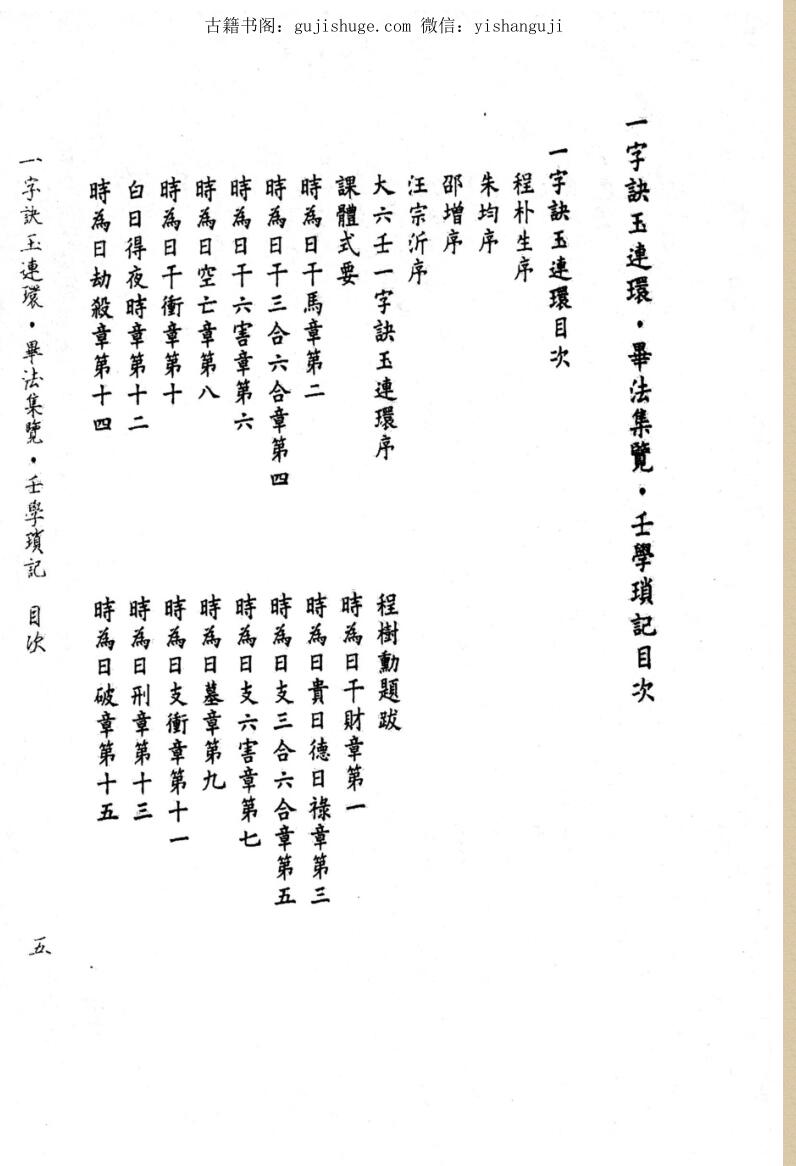 古籍书阁：gujishuge.com 微信：yishanguji
一字訣玉連環・畢法集覽・壬學瑣記目次
一字訣玉連環目次
程朴生序
朱均序
邵增序
汪宗沂序
大六壬一字訣玉連環序
程樹勳題跋
課體式要
時為日干財章第一
時為日干馬章第二
時為日貴日德日祿章第三
時為日干三合六合章第四
時為日支三合六合章第五
時為日干六害章第六
時為日支六害章第七
時為日空亡章第八
時為日墓章第九
時為日干衝章第十
時為日支衝章第十一
白日得夜時章第十二
時為日刑章第十三
時為日劫殺章第十四
時為日破章第十五
一字訣玉連環・畢法集覽・壬學瑣記 目次
五